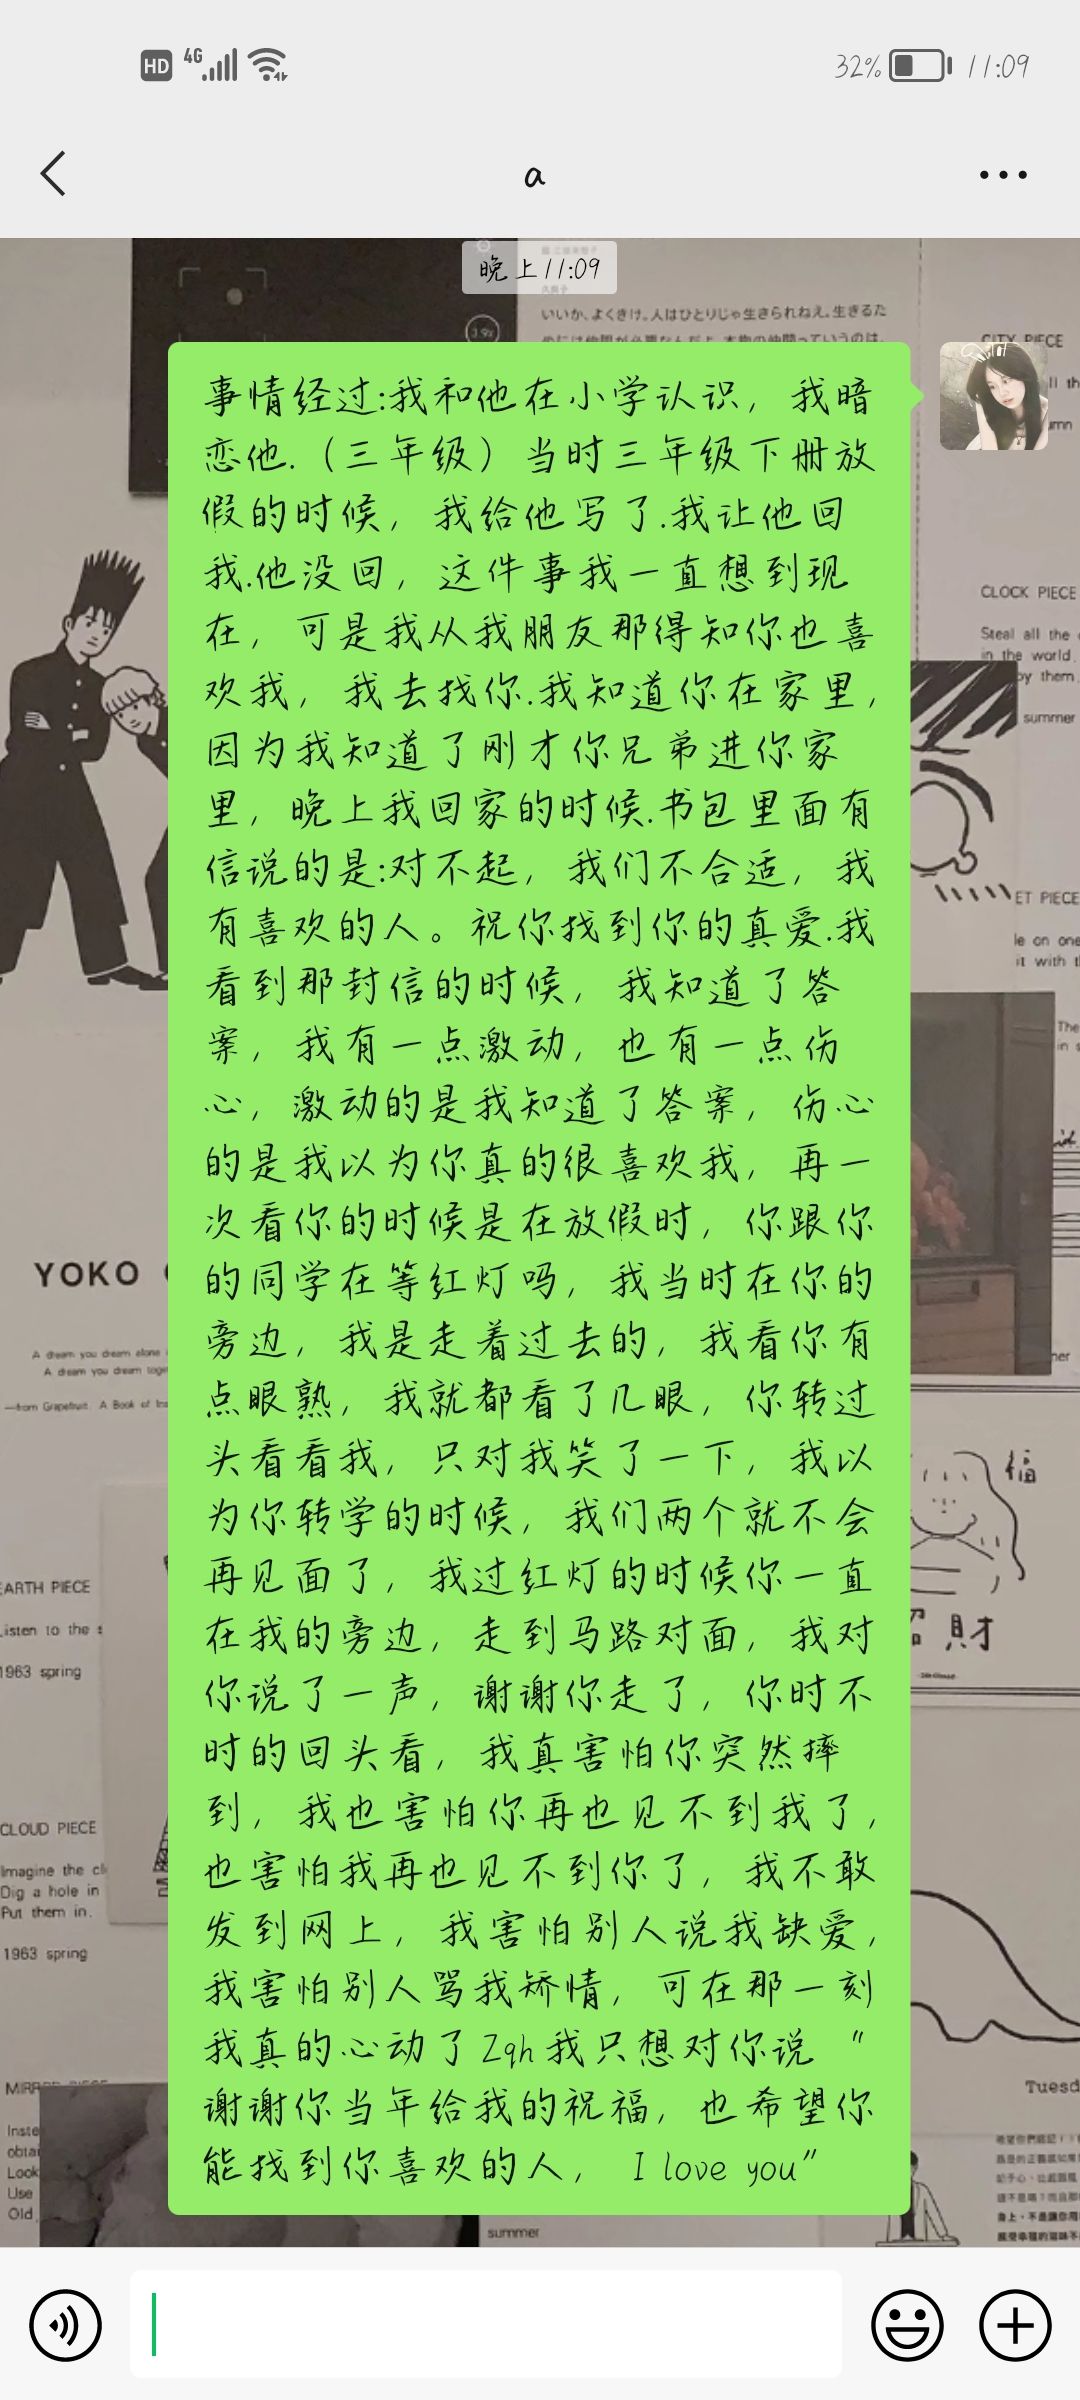 HD 4G 32% 11:09
a
晚上11:09
いいか、よくきけ。人はひとりじゃ生きられねえ。生きるた
CITY PIECE
事情经过:我和他在小学认识，我暗
恋他.（三年级）当时三年级下册放
假的时候，我给他写了.我让他回
我.他没回，这件事我一直想到现
在，可是我从我朋友那得知你也喜
欢我，我去找你.我知道你在家里，
因为我知道了刚才你兄弟进你家
里，晚上我回家的时候.书包里面有
信说的是:对不起，我们不合适，我
有喜欢的人。祝你找到你的真爱.我
看到那封信的时候，我知道了答
案，我有一点激动，也有一点伤
心，激动的是我知道了答案，伤心
的是我以为你真的很喜欢我，再一
次看你的时候是在放假时，你跟你
的同学在等红灯吗，我当时在你的
旁边，我是走着过去的，我看你有
点眼熟，我就都看了几眼，你转过
头看看我，只对我笑了一下，我以
为你转学的时候，我们两个就不会
再见面了，我过红灯的时候你一直
在我的旁边，走到马路对面，我对
你说了一声，谢谢你走了，你时不
时的回头看，我真害怕你突然摔
到，我也害怕你再也见不到我了，
也害怕我再也见不到你了，我不敢
发到网上，我害怕别人说我缺爱，
我害怕别人骂我矫情，可在那一刻
我真的心动了Zqh我只想对你说“
谢谢你当年给我的祝福，也希望你
能找到你喜欢的人， I love you”
CLOCK PIECE
Steal all the
in the world.
by them.
summer
ET PIECE
le on one
it with t
YOKO
A dream you dream alone
A dream you dream toge
—from Grapefruit. A Book of Ins
福
財
EARTH PIECE
Listen to the s
1963 spring
CLOUD PIECE
Imagine the cl
Dig a hole in
Put them in.
1963 spring
Tuesd
Inste
obtai
Look
Use
Old.
summer